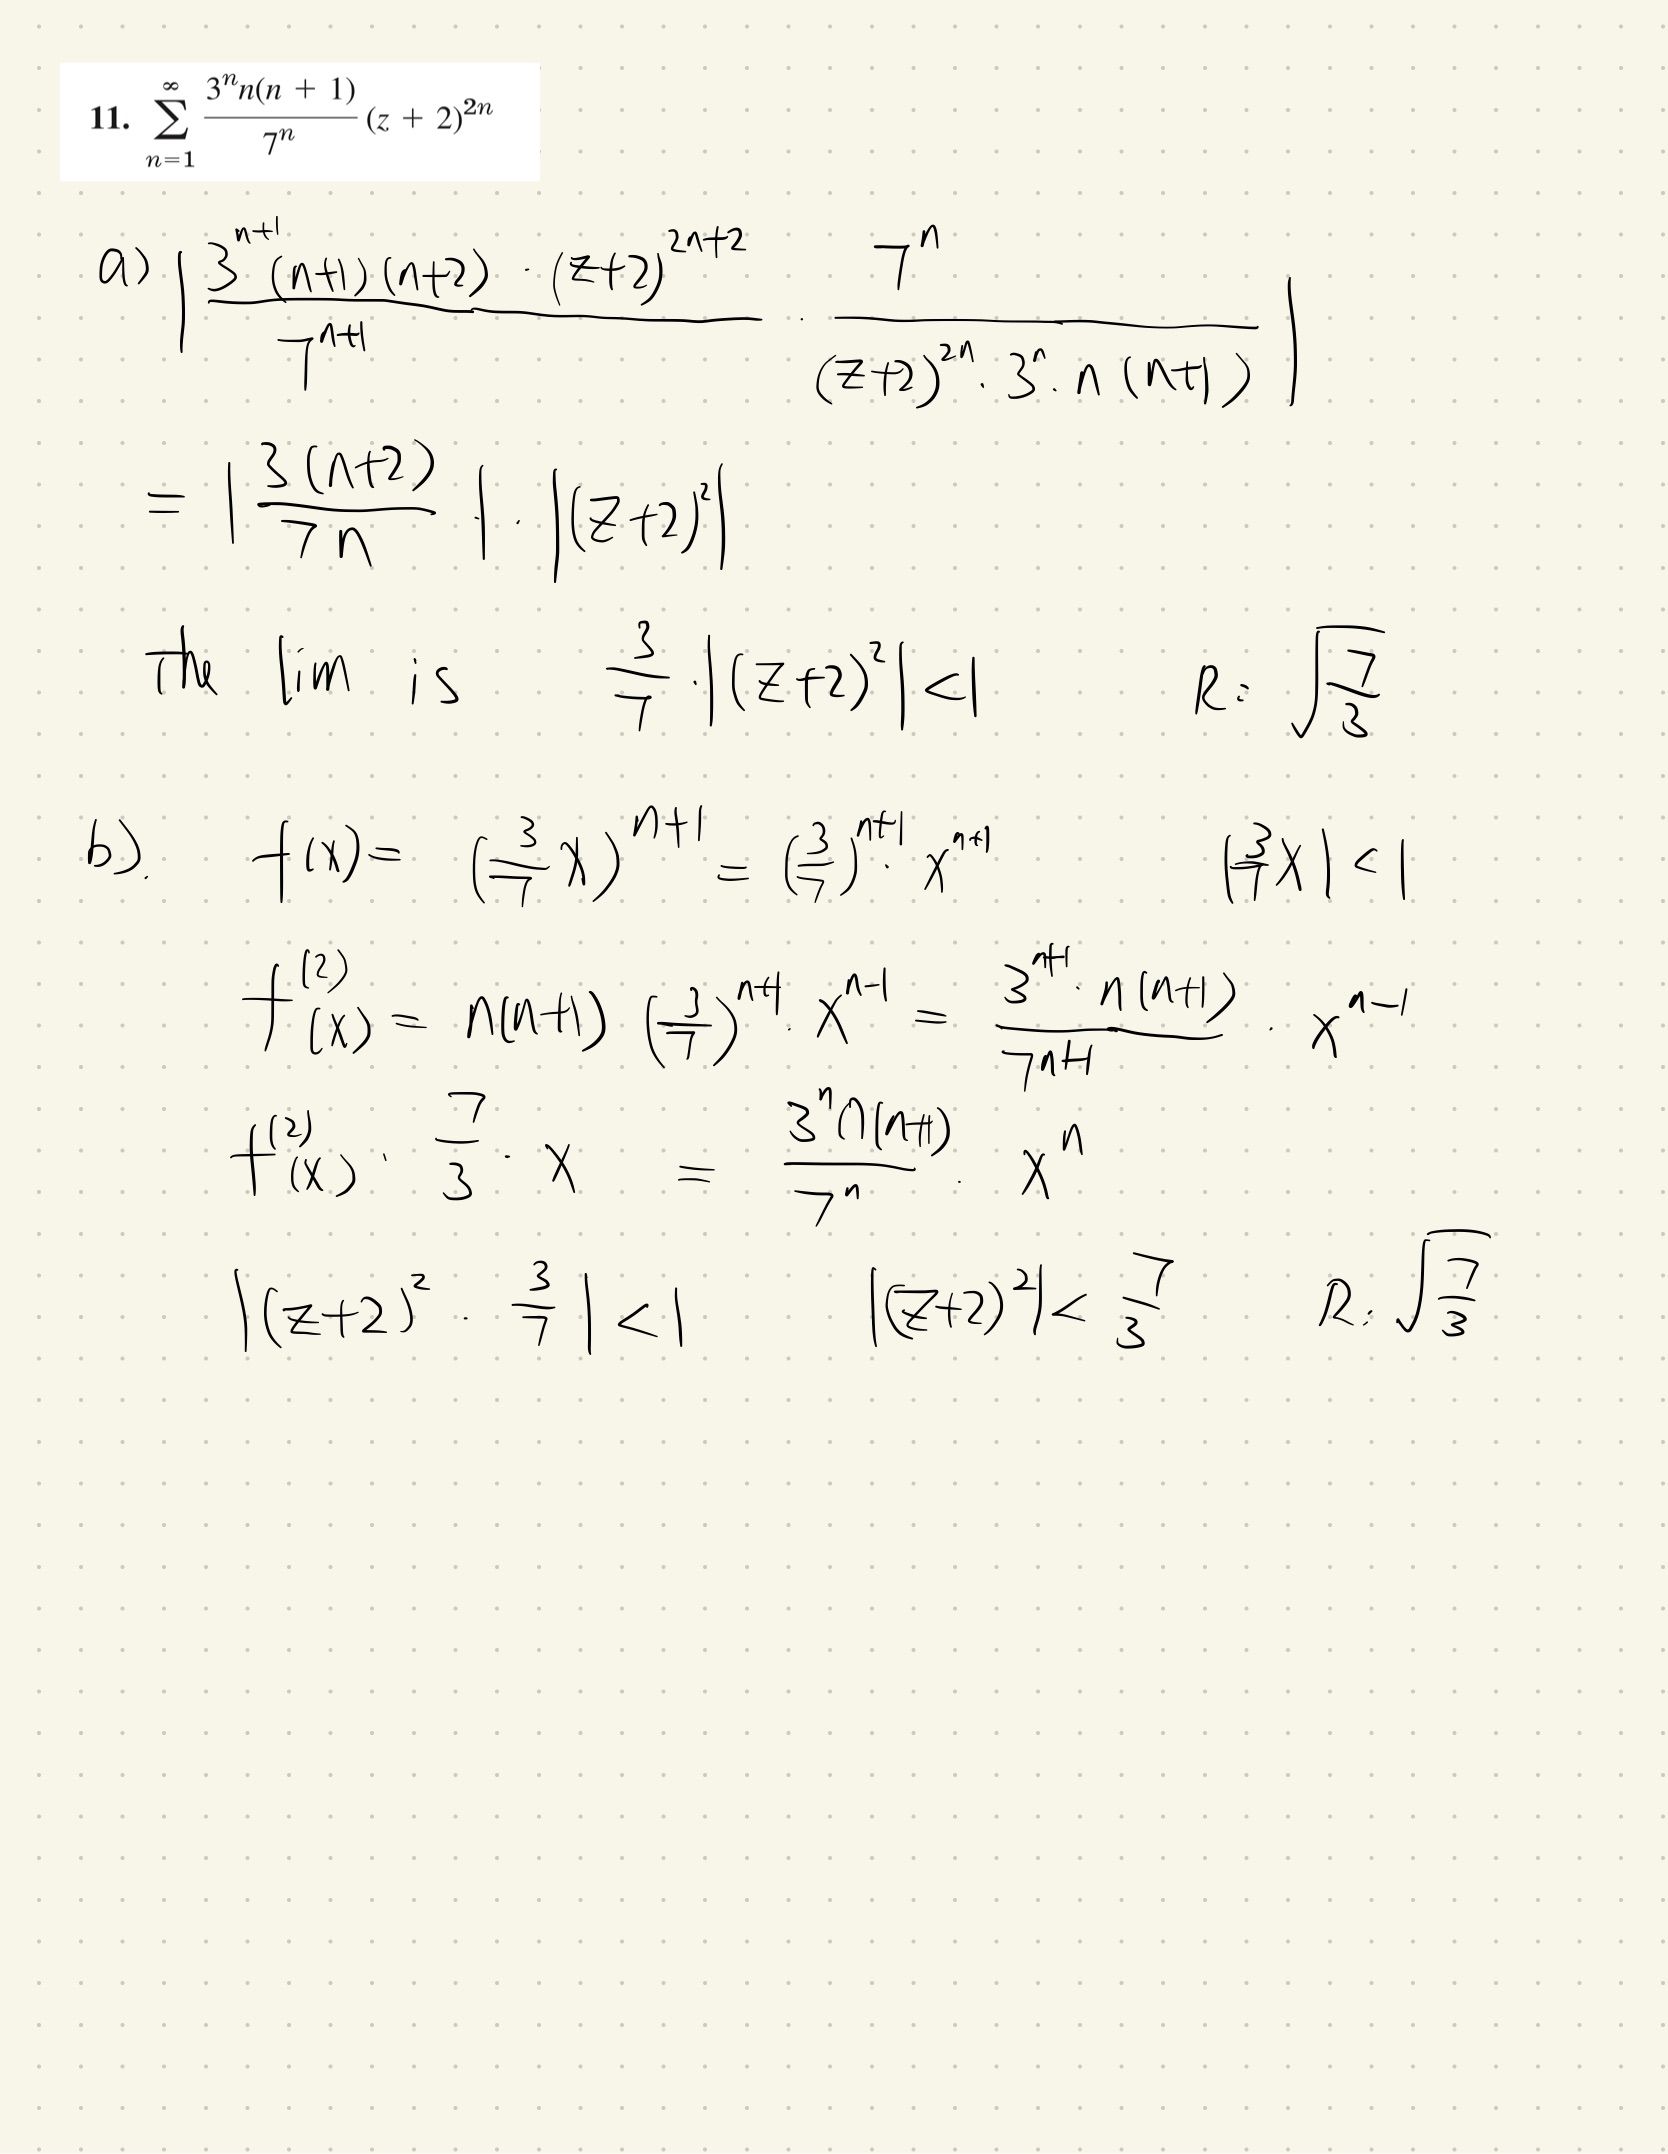 11. ∑_{n=1}^{∞} \frac{3^n n(n + 1)}{7^n} (z + 2)^{2n}
a) | \frac{3^{n+1} (n+1)(n+2) · (z+2)^{2n+2}}{7^{n+1}} · \frac{7^n}{(z+2)^{2n} · 3^n · n (n+1)} |
= | \frac{3(n+2)}{7n} | · |(z+2)^2|
The lim is \frac{3}{7} · |(z+2)^2| < 1 R: \sqrt{\frac{7}{3}}
b). f(x) = (\frac{3}{7} x)^{n+1} = (\frac{3}{7})^{n+1} · x^{n+1} |\frac{3}{7} x| < 1
f^{(2)}(x) = n(n+1) (\frac{3}{7})^{n+1} · x^{n-1} = \frac{3^{n+1} · n(n+1)}{7^{n+1}} · x^{n-1}
f^{(2)}(x) · \frac{7}{3} · x = \frac{3^n n(n+1)}{7^n} · x^n
|(z+2)^2 · \frac{3}{7}| < 1 |(z+2)^2| < \frac{7}{3} R: \sqrt{\frac{7}{3}}